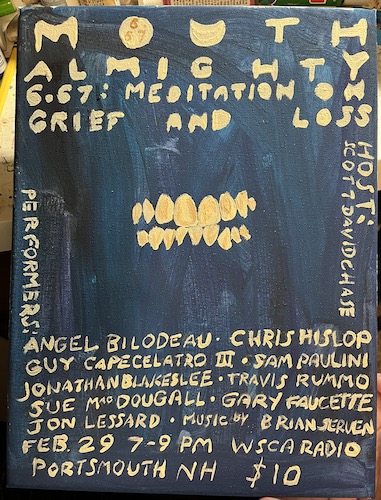 MOUTH
6.
5.7
ALMIGHTY
6.67: MEDITATION ON
GRIEF AND LOSS
HOST:
SCOTT DAVID CHASE
PERFORMERS:
ANGEL BILODEAU · CHRIS HISLOP
GUY CAPECELATRO III · SAM PAULINI
JONATHAN BLAKESLEE · TRAVIS RUMMO
SUE MacDOUGALL · GARY FAUCETTE
JON LESSARD · MUSIC BY BRIAN
FEB. 29 7-9 PM WSCA RADIO
PORTSMOUTH NH $10